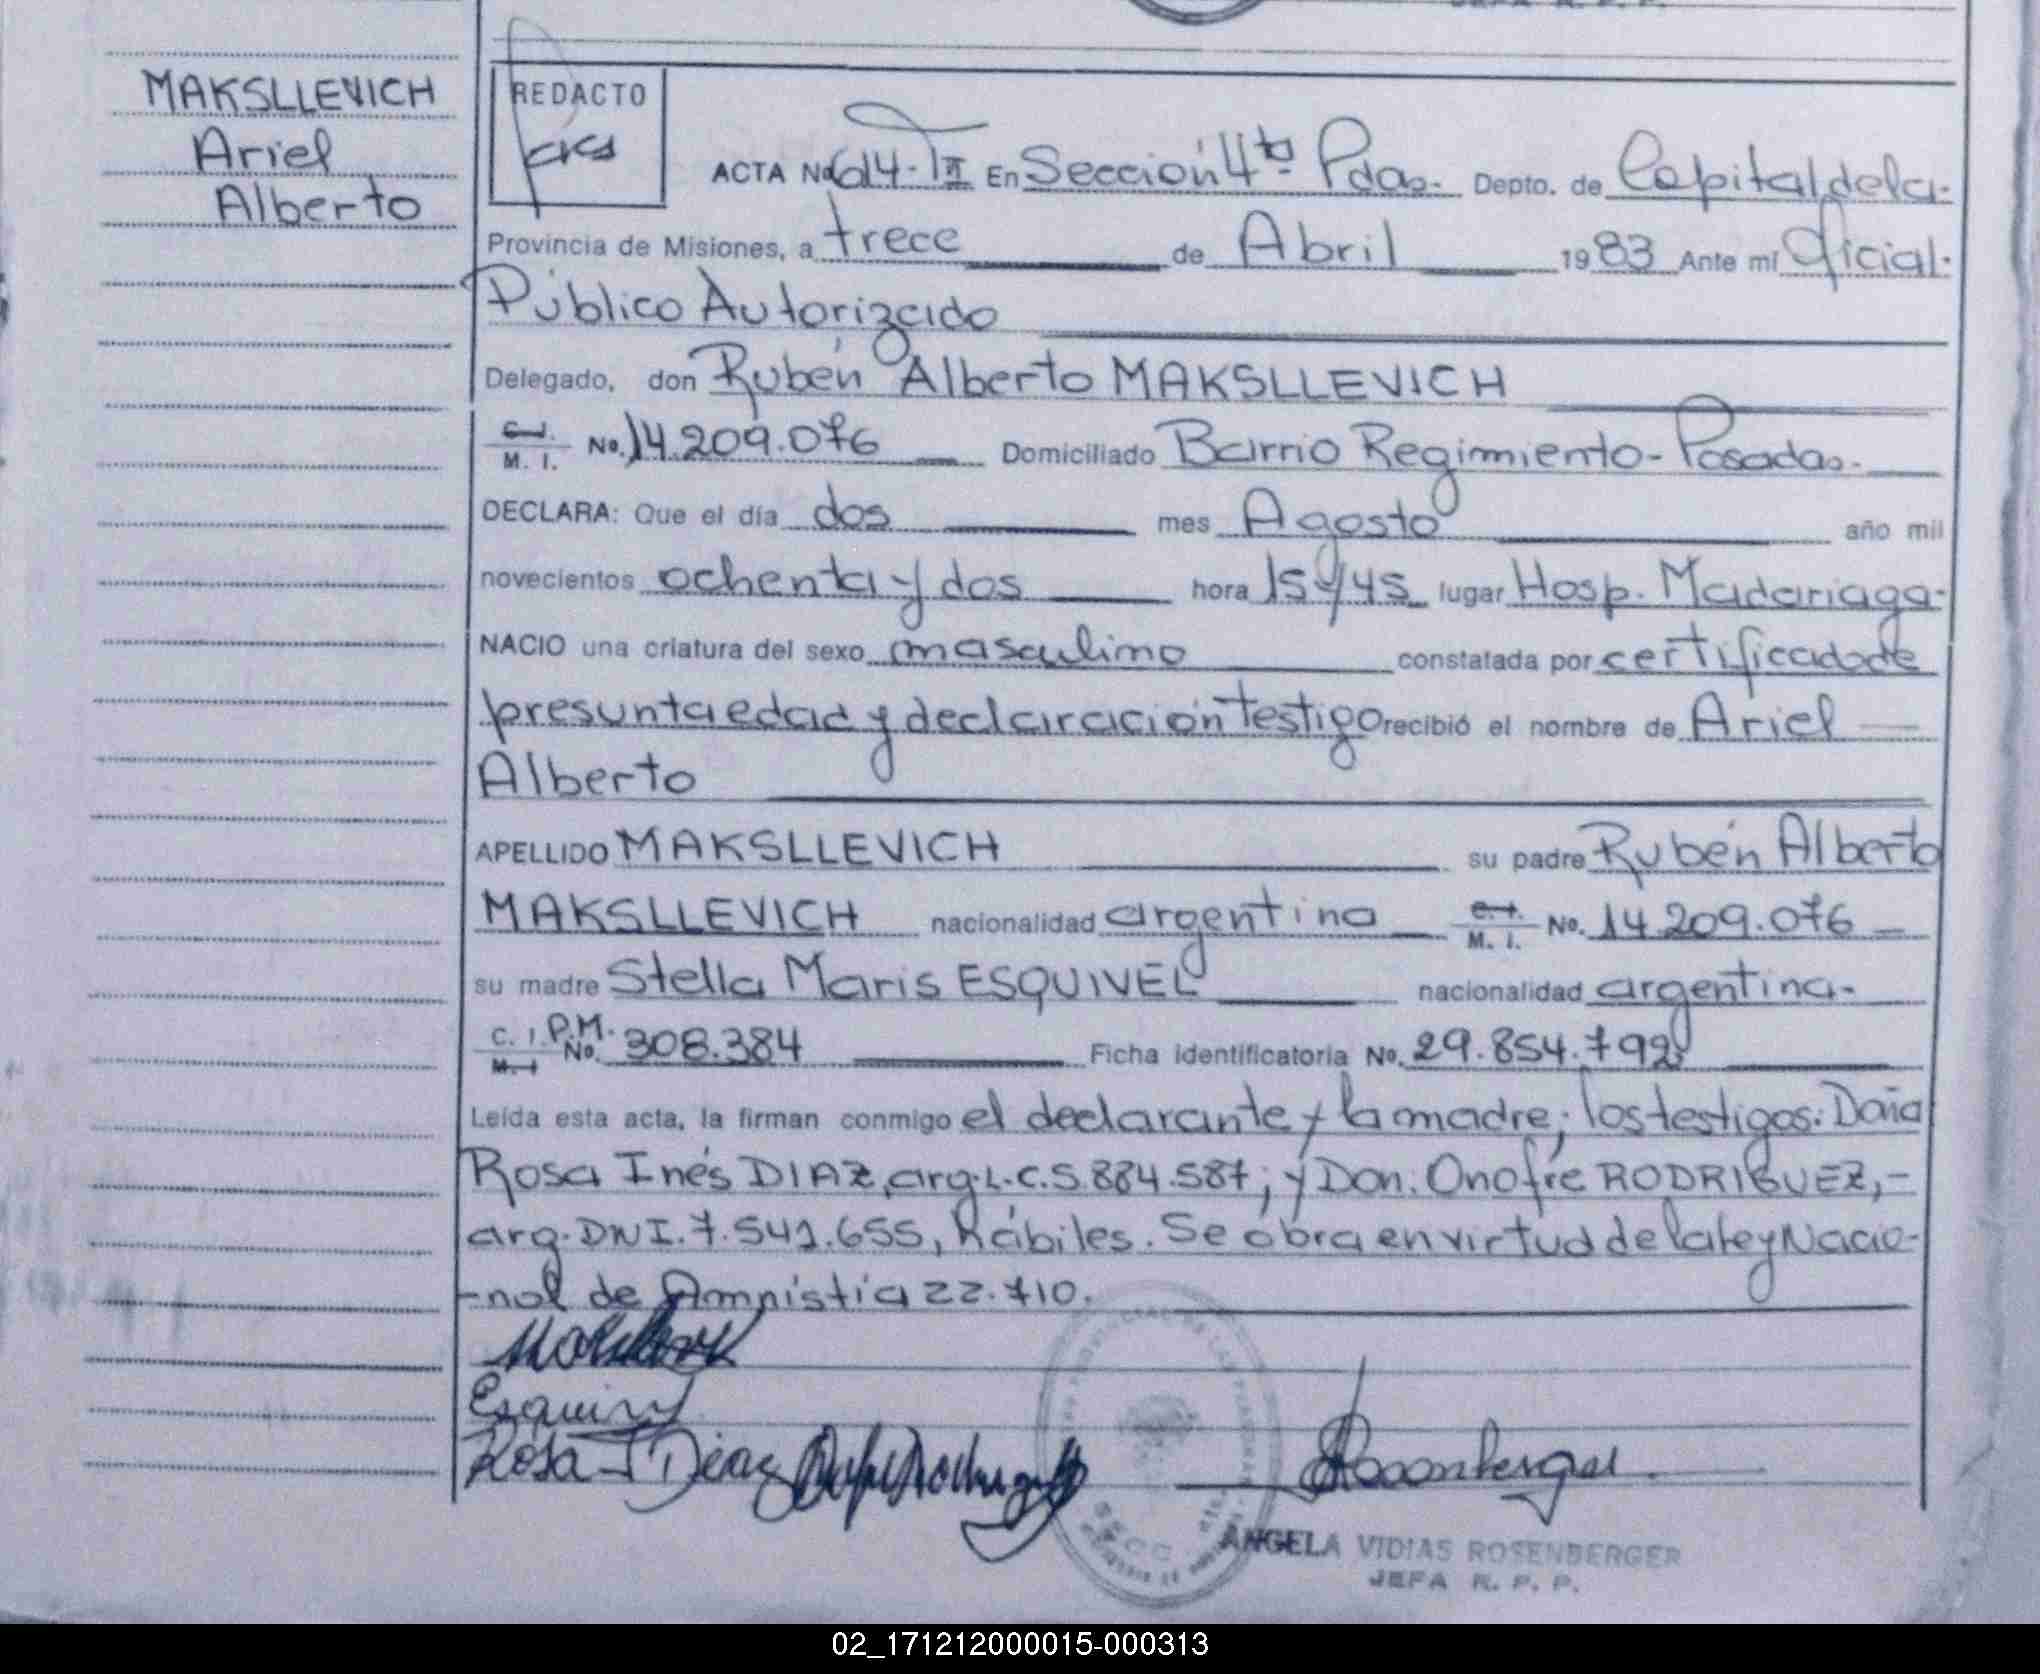 MAKSLLEVICH
Ariel
Alberto
REDACTO
ACTA No 614-TII En Sección 4ta Pdas. Depto. de Capital de la
Provincia de Misiones, a trece de Abril 1983 Ante mí Oficial
Público Autorizado
Delegado, don Rubén Alberto MAKSLLEVICH
C.I. M. I. No. 14.209.076 Domiciliado Barrio Regimiento - Posadas.-
DECLARA: Que el día dos mes Agosto año mil
novecientos ochenta y dos hora 15 y 45 lugar Hosp. Madariaga-
NACIO una criatura del sexo masculino constatada por certificado de
presunta edad y declaración testigo recibió el nombre de Ariel
Alberto
APELLIDO MAKSLLEVICH su padre Rubén Alberto
MAKSLLEVICH nacionalidad argentina C.I. M. I. No. 14.209.076
su madre Stella Maris ESQUIVEL nacionalidad argentina.-
C. I. P.M. M.I No. 308.384 Ficha identificatoria No. 29.854.792
Leída esta acta, la firman conmigo el declarante y la madre; los testigos: Doña
Rosa Inés DIAZ, arg. L.C. 5.884.587; y Don: Onofre RODRIGUEZ,-
arg. DNI. 7.541.655, hábiles. Se obra en virtud de la ley Nacio-
-nal de Amnistía 22.710.
Rosa I Diaz
ANGELA VIDIAS ROSENBERGER
JEFA R. P. P.
02_171212000015-000313